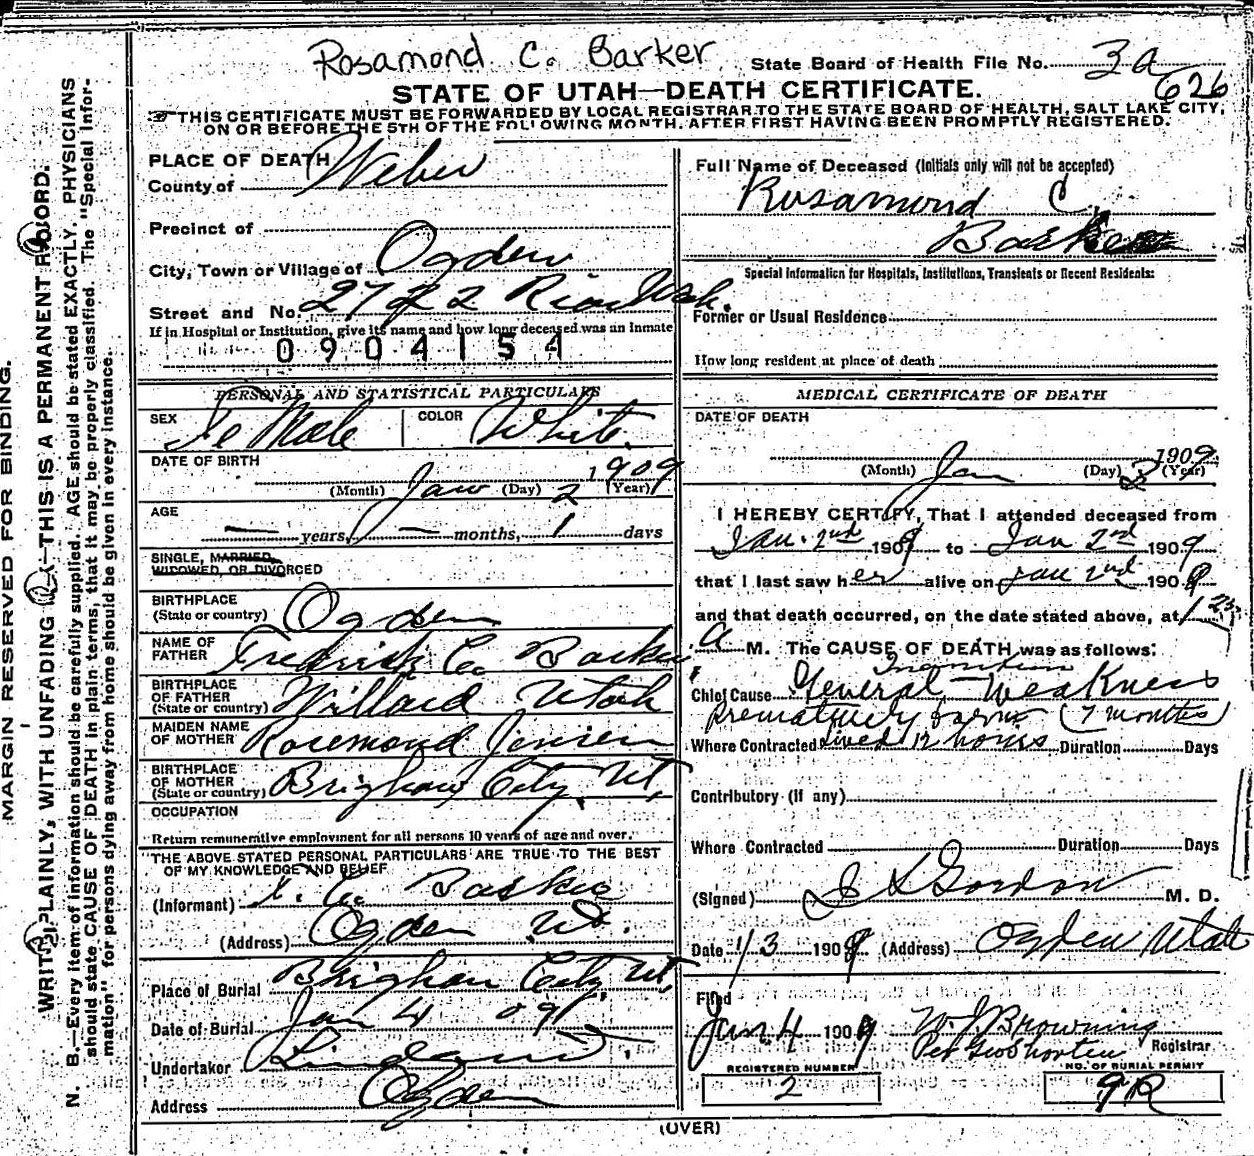 Rosamond C. Barker
State Board of Health File No. 3a 626
STATE OF UTAH—DEATH CERTIFICATE.
THIS CERTIFICATE MUST BE FORWARDED BY LOCAL REGISTRAR TO THE STATE BOARD OF HEALTH, SALT LAKE CITY,
ON OR BEFORE THE 5TH OF THE FOLLOWING MONTH, AFTER FIRST HAVING BEEN PROMPTLY REGISTERED.
MARGIN RESERVED FOR BINDING.
WRITE PLAINLY, WITH UNFADING INK—THIS IS A PERMANENT RECORD.
N. B.—Every item of information should be carefully supplied. AGE should be stated EXACTLY. PHYSICIANS
should state CAUSE OF DEATH in plain terms, that it may be properly classified. The "Special Infor-
mation" for persons dying away from home should be given in every instance.
PLACE OF DEATH
County of Weber
Precinct of
City, Town or Village of Ogden
Street and No. 2722
If in Hospital or Institution, give its name and how long deceased was an Inmate
0904154
PERSONAL AND STATISTICAL PARTICULARS
SEX Fe Male COLOR White
DATE OF BIRTH
(Month) Jan (Day) 2 1909 (Year)
AGE
— years, — months, 1 days
SINGLE, MARRIED,
WIDOWED, OR DIVORCED
BIRTHPLACE
(State or country) Ogden
NAME OF
FATHER Fredrick C. Barker
BIRTHPLACE
OF FATHER
(State or country) Willard Utah
MAIDEN NAME
OF MOTHER Rosemond Jensen
BIRTHPLACE
OF MOTHER
(State or country) Brigham City, Ut.
OCCUPATION
Return remunerative employment for all persons 10 years of age and over.
THE ABOVE STATED PERSONAL PARTICULARS ARE TRUE TO THE BEST
OF MY KNOWLEDGE AND BELIEF
(Informant) F. C. Barker
(Address) Ogden Ut.
Place of Burial Brigham City, Ut.
Date of Burial Jan 4 09
Undertaker
Address Ogden
Full Name of Deceased (Initials only will not be accepted)
Rosamond C.
Barker
Special Information for Hospitals, Institutions, Transients or Recent Residents:
Former or Usual Residence
How long resident at place of death
MEDICAL CERTIFICATE OF DEATH
DATE OF DEATH
(Month) Jan (Day) 3 1909 (Year)
I HEREBY CERTIFY, That I attended deceased from
Jan. 2nd 1909 to Jan 2nd 1909
that I last saw her alive on Jan 2nd 1909
and that death occurred, on the date stated above, at 1 23
A M. The CAUSE OF DEATH was as follows:
Inanition
Chief Cause General Weakness
prematurely born (7 months)
Where Contracted lived 12 hours Duration Days
Contributory (if any)
Where Contracted Duration Days
(Signed) Gordon M. D.
Date 1/3 1909 (Address) Ogden Utah
Filed
Jan 4 1909 W. J. Browning
Per Registrar
REGISTERED NUMBER
2
NO. OF BURIAL PERMIT
9R
(OVER)